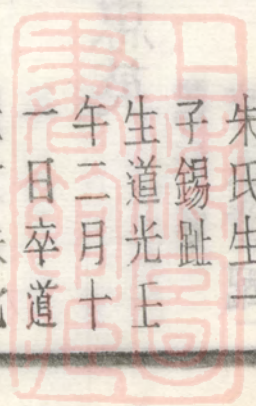 朱氏生一
子錫趾
生道光壬
午二月十
一日卒道